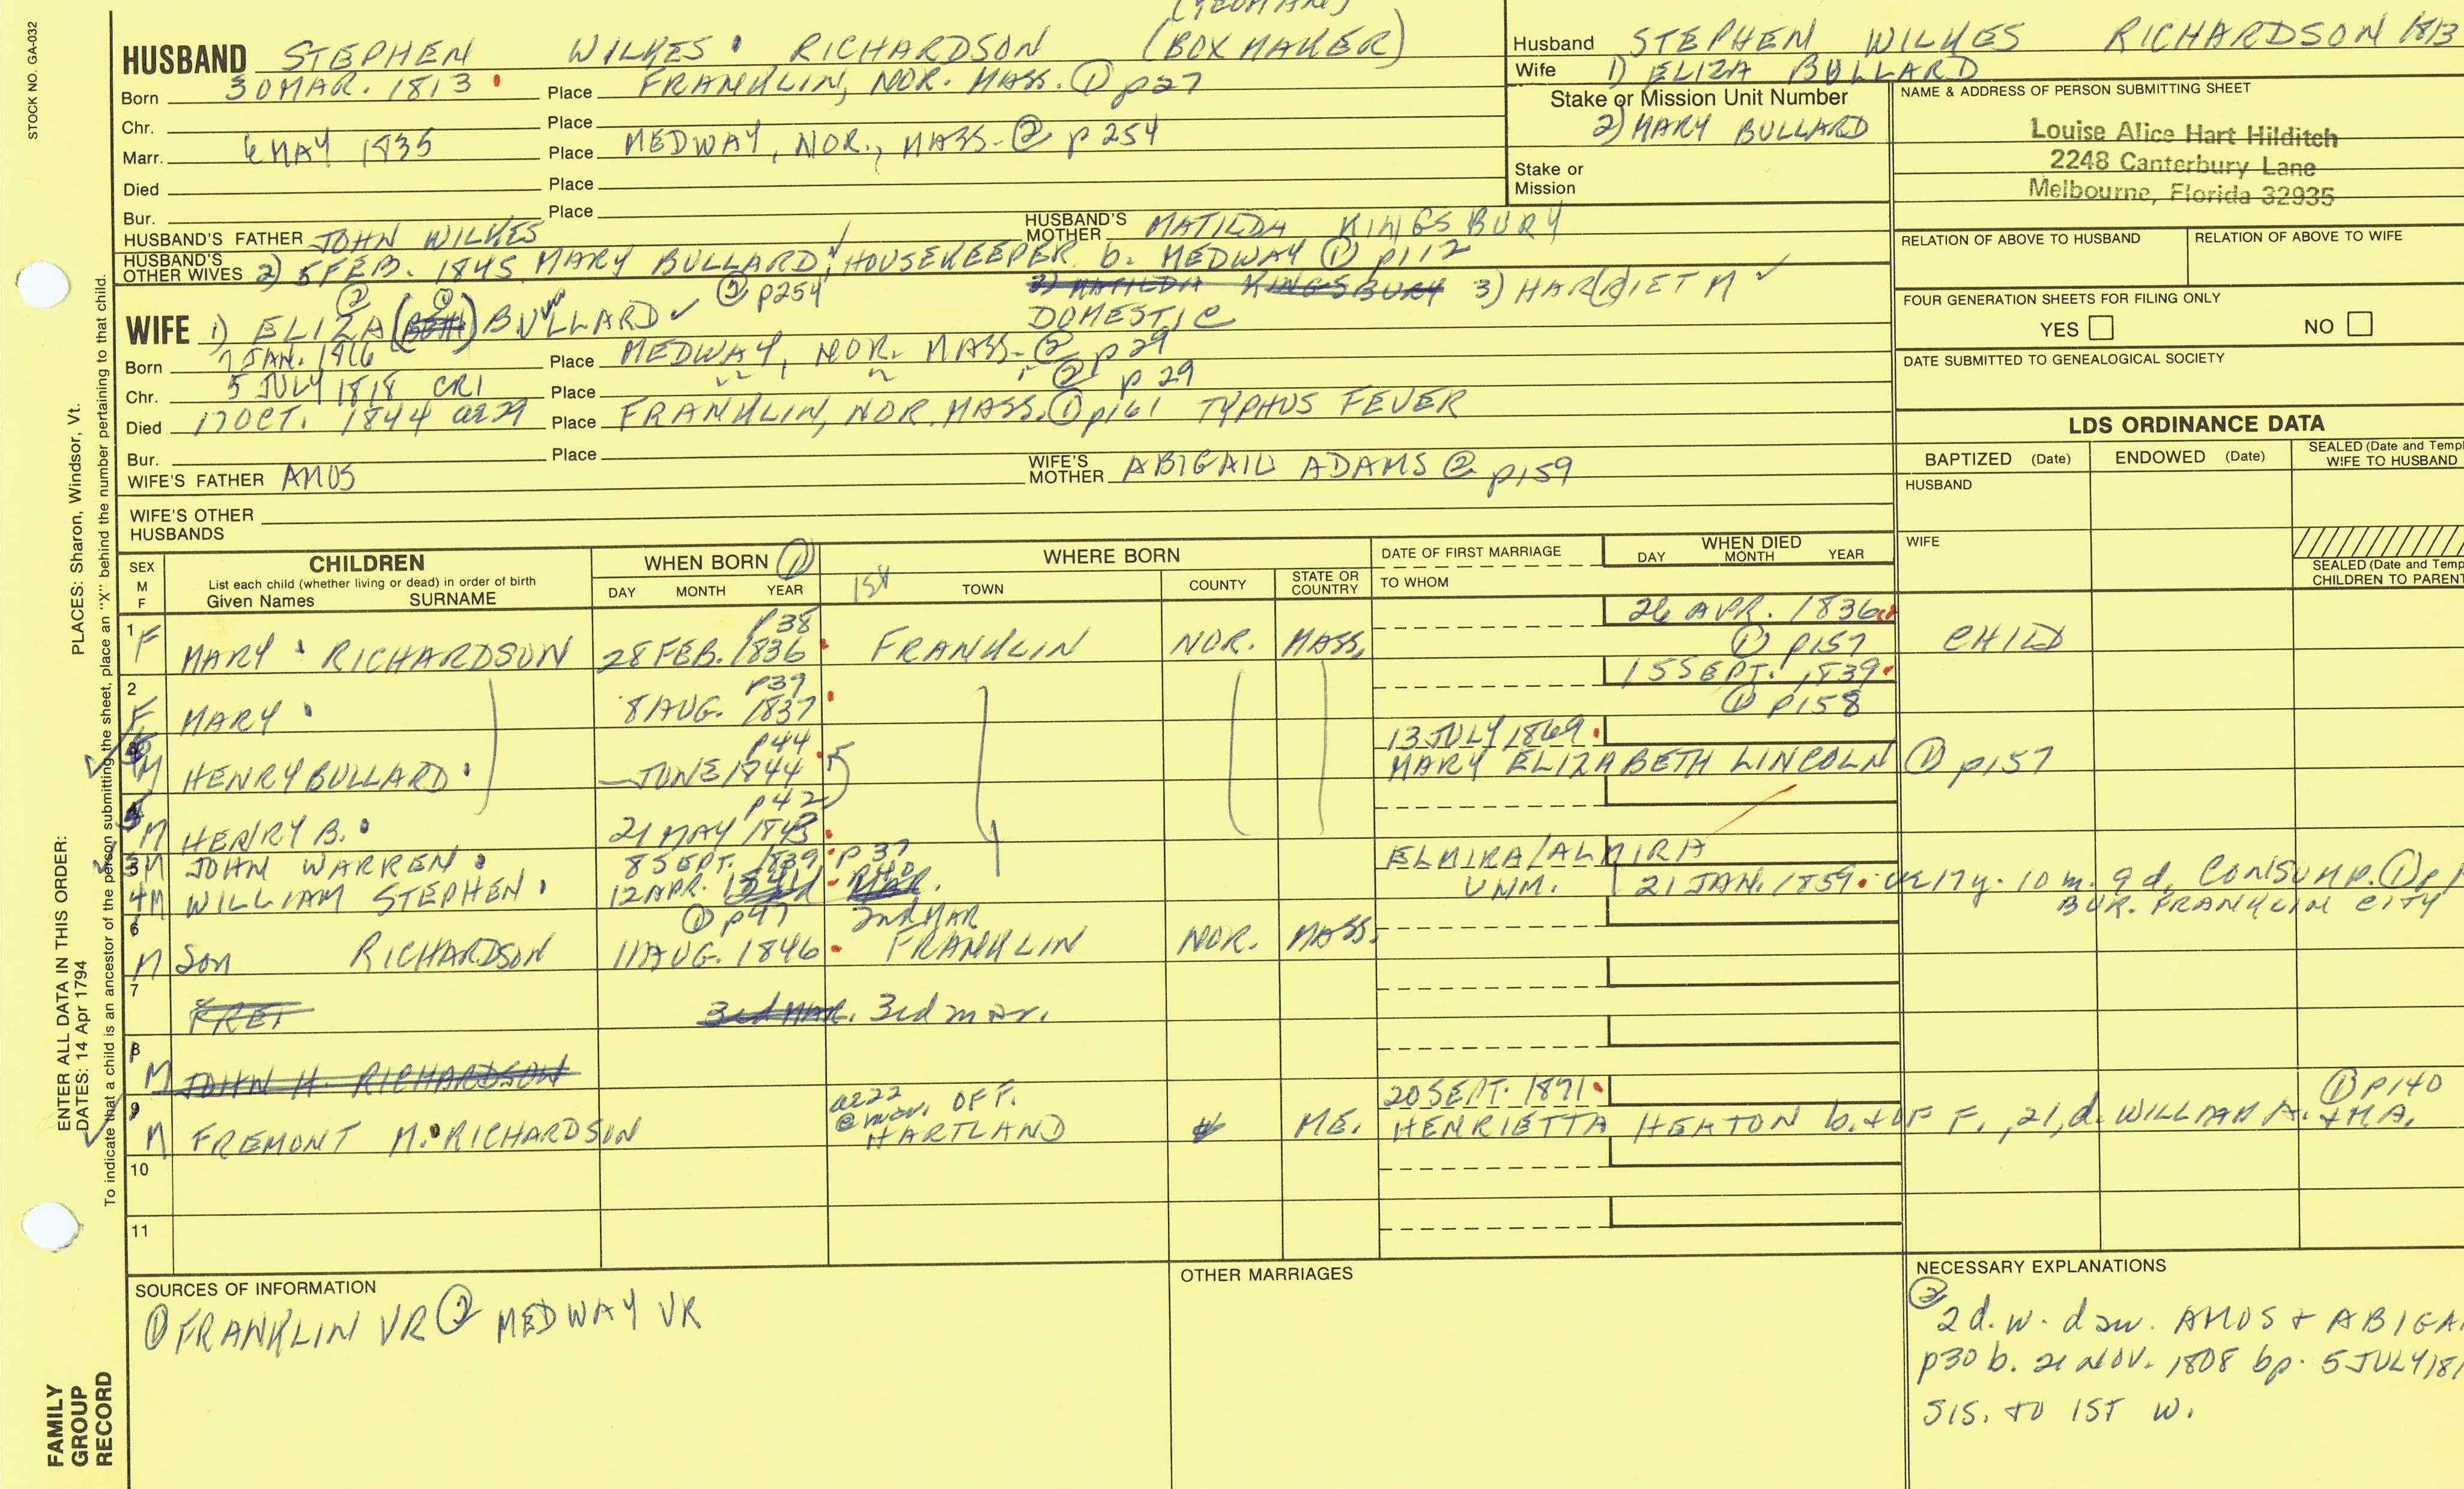 STOCK NO. GA-032
(YEOMAN)
HUSBAND STEPHEN WILKES RICHARDSON (BOX MAKER)
Born 30 MAR. 1813 Place FRANKLIN, NOR. MASS. ① p27
Chr. Place
Marr. 6 MAY 1835 Place MEDWAY, NOR., MASS. ② p 254
Died Place
Bur. Place
HUSBAND'S FATHER JOHN WILKES HUSBAND'S MOTHER MATILDA KINGSBURY
HUSBAND'S OTHER WIVES 2) 5 FEB. 1845 MARY BULLARD, HOUSEKEEPER b. MEDWAY ① p112
② p254 3) MATILDA KINGSBURY 3) HAR(R)IET M ✓
DOMESTIC
WIFE 1) ELIZA BULLARD ✓
Born 7 JAN. 1816 Place MEDWAY, NOR. MASS. ② p 29
Chr. 5 JULY 1818 CR1 Place ② p 29
Died 17 OCT. 1844 ae 29 Place FRANKLIN, NOR. MASS. ① p161 TYPHUS FEVER
Bur. Place
WIFE'S FATHER AMOS WIFE'S MOTHER ABIGAIL ADAMS ② p159
WIFE'S OTHER HUSBANDS
Husband STEPHEN WILKES RICHARDSON 1813
Wife 1) ELIZA BULLARD
Stake or Mission Unit Number
2) MARY BULLARD
Stake or Mission
NAME & ADDRESS OF PERSON SUBMITTING SHEET
Louise Alice Hart Hilditch
2248 Canterbury Lane
Melbourne, Florida 32935
RELATION OF ABOVE TO HUSBAND RELATION OF ABOVE TO WIFE
FOUR GENERATION SHEETS FOR FILING ONLY
YES NO
DATE SUBMITTED TO GENEALOGICAL SOCIETY
LDS ORDINANCE DATA
BAPTIZED (Date) ENDOWED (Date) SEALED (Date and Templ
WIFE TO HUSBAND
HUSBAND
WIFE
SEALED (Date and Temp
CHILDREN TO PARENT
SEX M F CHILDREN WHEN BORN ① WHERE BORN DATE OF FIRST MARRIAGE WHEN DIED
List each child (whether living or dead) in order of birth
Given Names SURNAME DAY MONTH YEAR 1st TOWN COUNTY STATE OR COUNTRY TO WHOM DAY MONTH YEAR
p38 26 APR. 1836
1 F MARY RICHARDSON 28 FEB. 1836 FRANKLIN NOR. MASS. ① p157 CHILD
p39 15 SEPT. 1839
2 F MARY 8 AUG. 1837 ① p158
p44 13 JULY 1869
M HENRY BULLARD JUNE 1844 MARY ELIZABETH LINCOLN ① p157
p42
M HENRY B. 21 MAY 1843
3 M JOHN WARREN 8 SEPT. 1839 p 37 ELMIRA/ALMIRA
4 M WILLIAM STEPHEN 12 APR. 1841 UNM. 21 JAN. 1859 ae 17 y. 10 m. 9 d. CONSUMP. ① p1
BUR. FRANKLIN CITY
① p47 2nd MAR
6 M Son RICHARDSON 11 AUG. 1846 FRANKLIN NOR. MASS.
7 3rd MAR. 3rd mar.
8 M JOHN H. RICHARDSON
ae 22 @ mar. OF F. 20 SEPT. 1891 ① p140
9 M FREMONT M. RICHARDSON HARTLAND ME. HENRIETTA HEATON b. + OF F., 21, d. WILLIAM A. + M.A.
10
11
SOURCES OF INFORMATION
① FRANKLIN VR ② MEDWAY VR
OTHER MARRIAGES
NECESSARY EXPLANATIONS
②
2 d. w. dau. AMOS + ABIGA
p30 b. 21 NOV. 1808 bp. 5 JULY 181
SIS. TO 1ST W.
PLACES: Sharon, Windsor, Vt.
ENTER ALL DATA IN THIS ORDER:
DATES: 14 Apr 1794
To indicate that a child is an ancestor of the person submitting the sheet, place an "X" behind the number pertaining to that child.
FAMILY
GROUP
RECORD